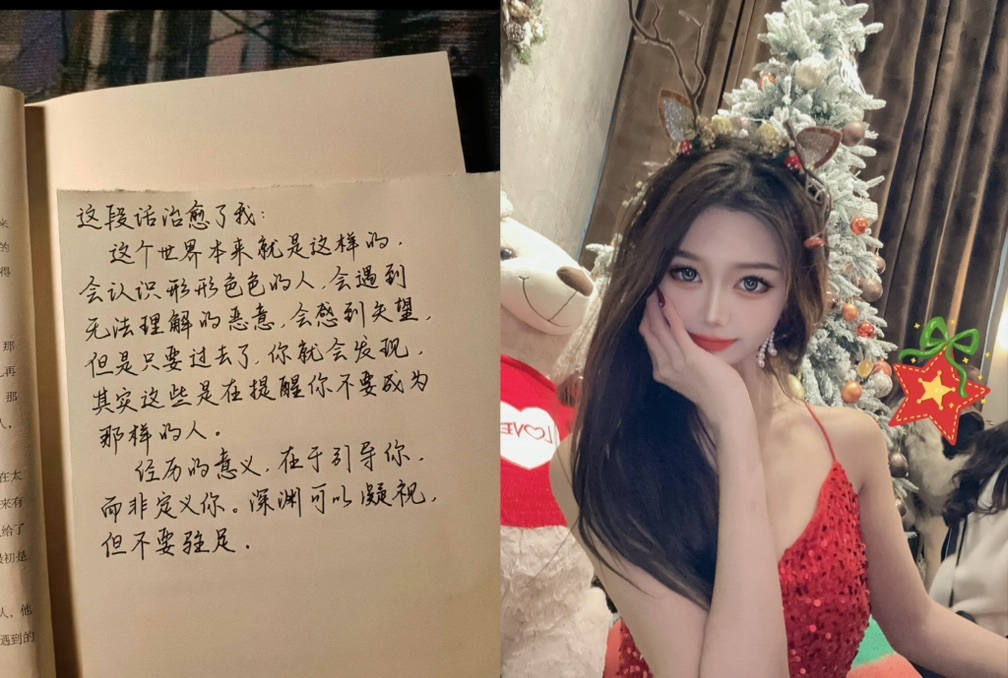 来
的
得
那
再
那
人，
在太
来有
给了
最初是
人，他
遇到的
这段话治愈了我：
这个世界本来就是这样的，
会认识形形色色的人，会遇到
无法理解的恶意，会感到失望，
但是只要过去了，你就会发现，
其实这些是在提醒你不要成为
那样的人。
经历的意义，在于引导你，
而非定义你。深渊可以凝视，
但不要驻足。
LOVE